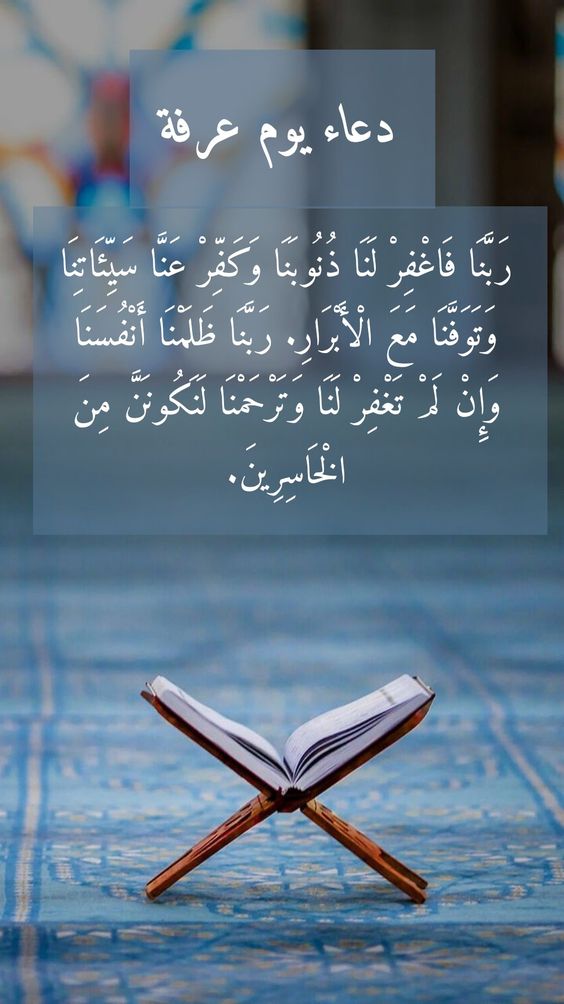 دعاء يوم عرفة
رَبَّنَا فَاغْفِرْ لَنَا ذُنُوبَنَا وَكَفِّرْ عَنَّا سَيِّئَاتِنَا
وَتَوَفَّنَا مَعَ الْأَبْرَارِ. رَبَّنَا ظَلَمْنَا أَنْفُسَنَا
وَإِنْ لَمْ تَغْفِرْ لَنَا وَتَرْحَمْنَا لَنَكُونَنَّ مِنَ
الْخَاسِرِينَ.